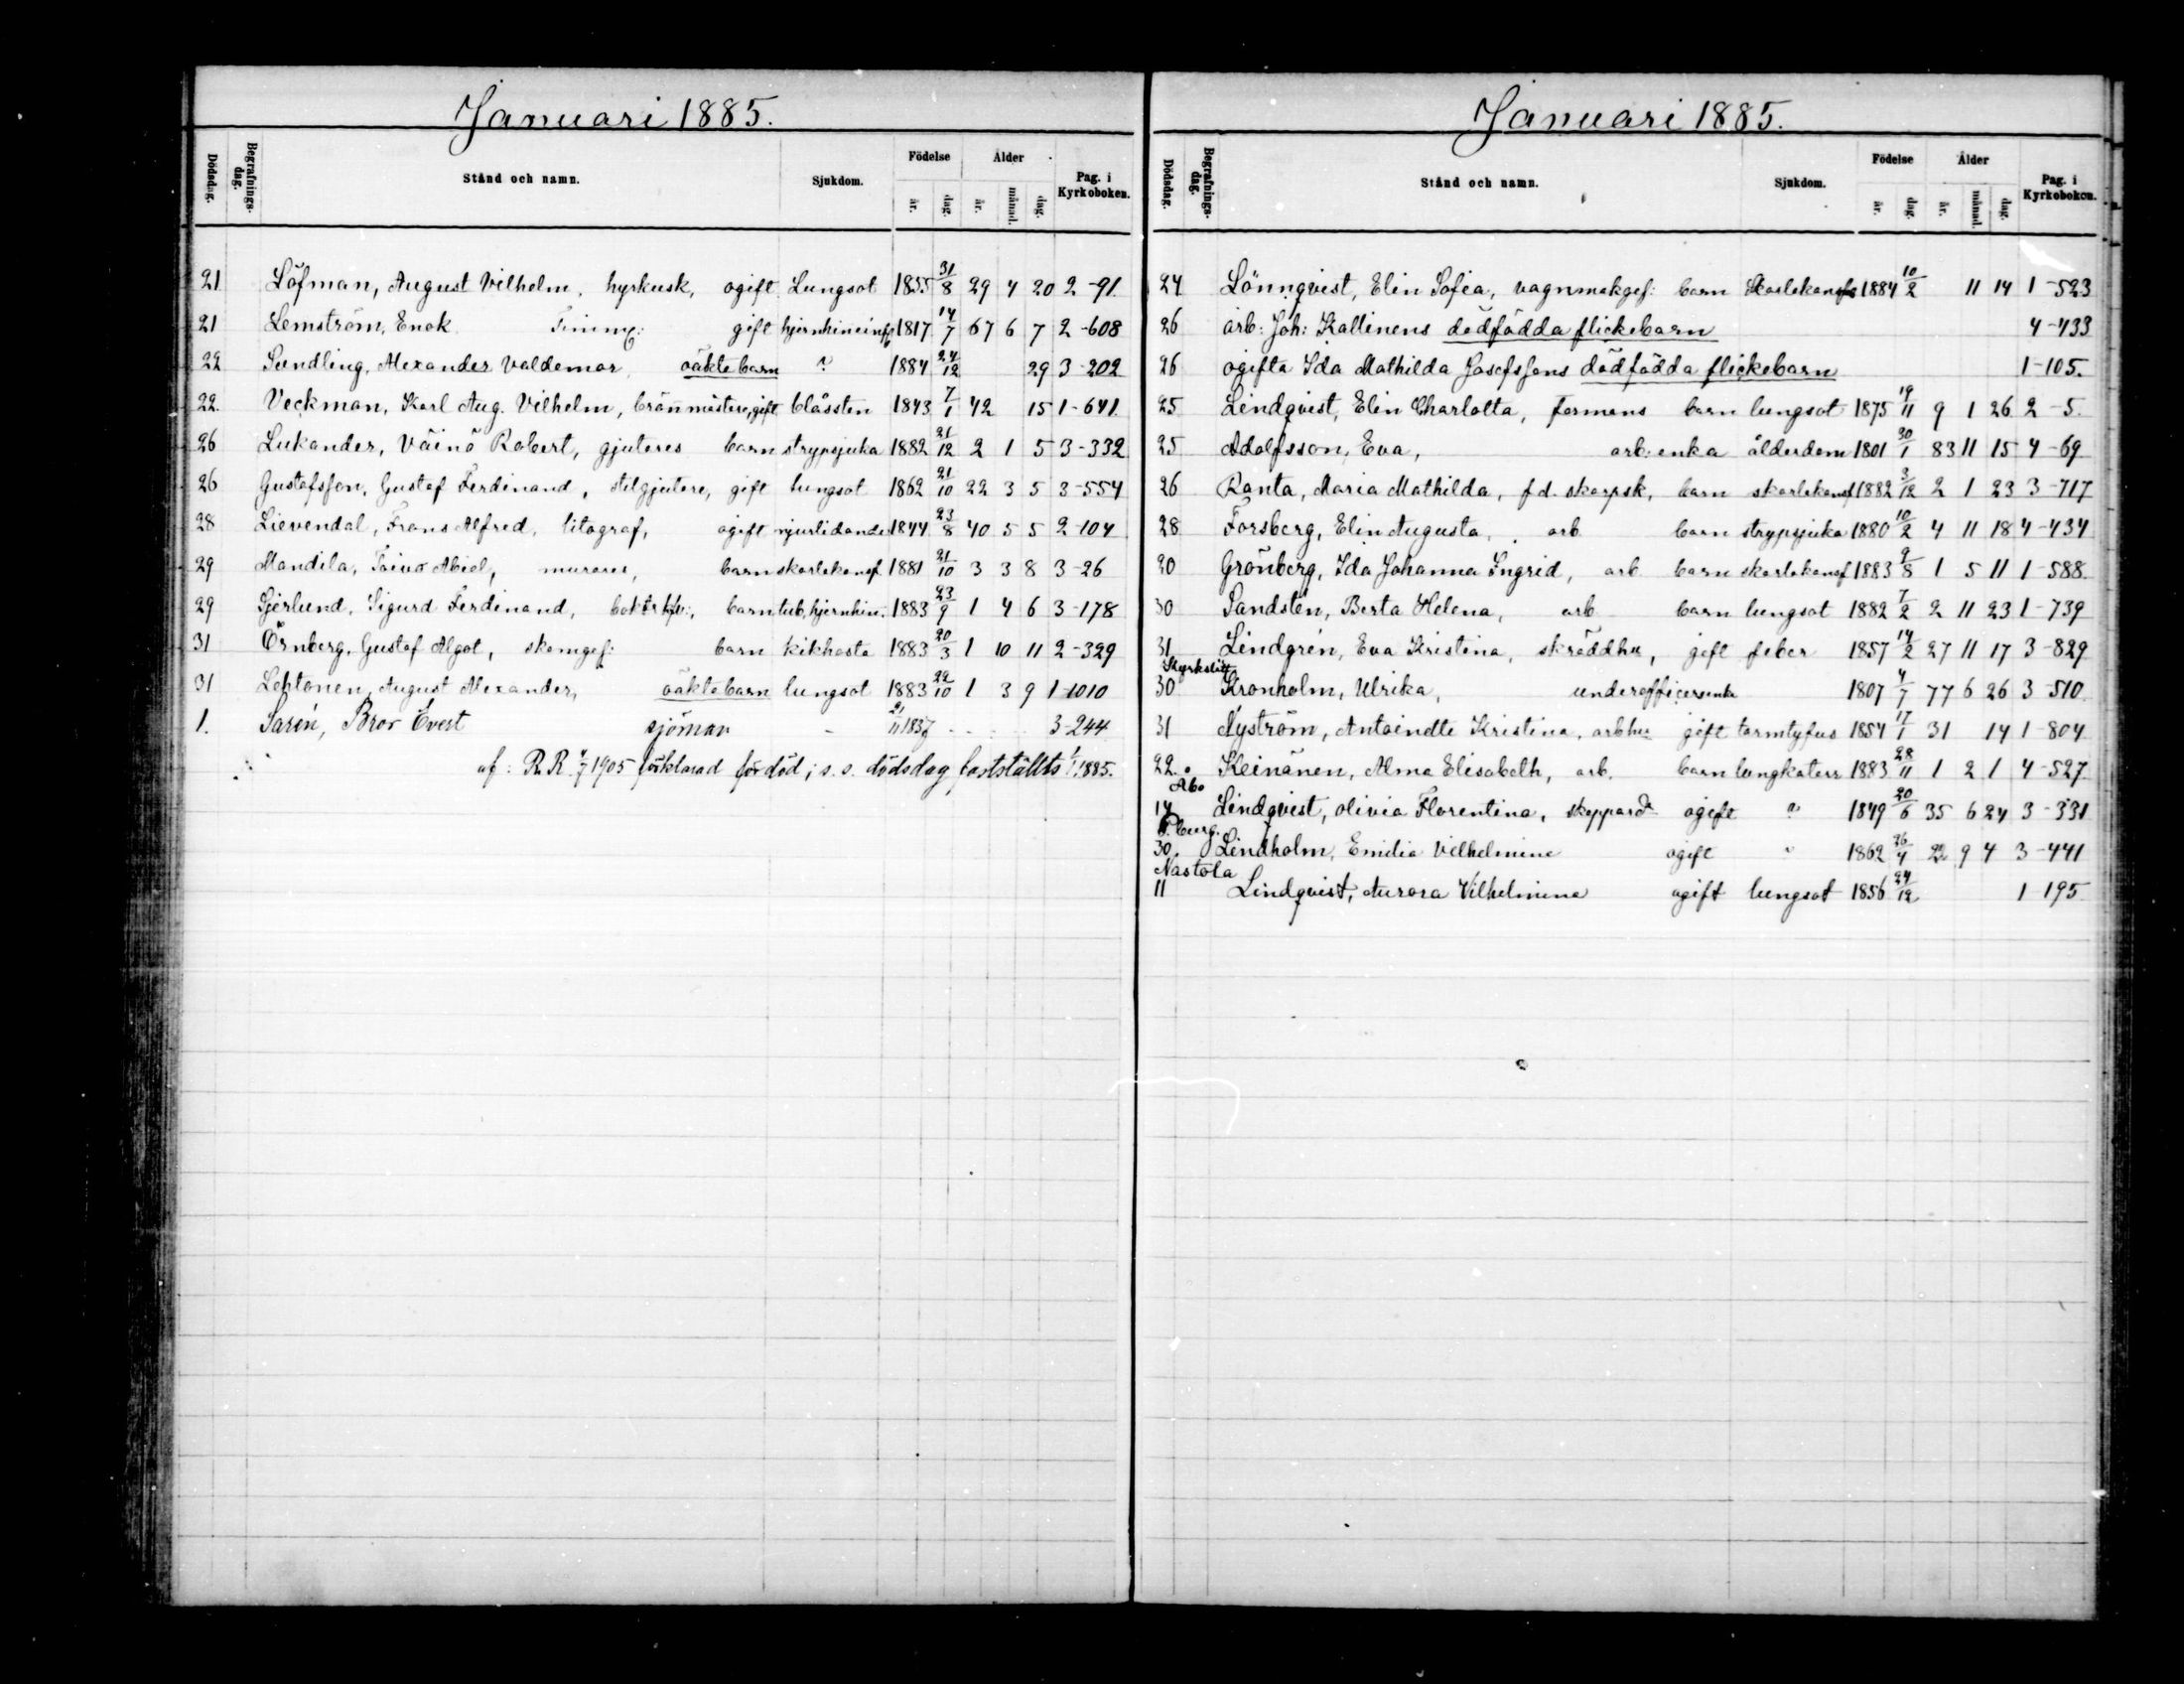 Januari 1885.
Dödsdag. Begrafnings-dag. Stånd och namn. Sjukdom. Födelse år. dag. Ålder år. månad. dag. Pag. i Kyrkoboken.
21 Löfman, August Vilhelm, hyrkusk, ogift Lungsot 1855 31/8 29 4 20 2-91
21 Lemström, Enok gift 1817 14/7 67 6 7 2-608
22 Sundling, Alexander Valdemar oäkta barn ? 1884 24/12 29 3-202
22 Veckman, Karl Aug. Vilhelm, brännmästere, gift blåssten 1843 7/1 42 15 1-641
26 Lukander, Väinö Robert, gjutares barn strypsjuka 1882 21/12 2 1 5 3-332
26 Gustafsson, Gustaf Ferdinand, stilgjutare, gift lungsot 1862 21/10 22 3 5 3-554
28 Lievendal, Frans Alfred, litograf, ogift njurlidande 1844 23/8 40 5 5 2-104
29 Mandila, Toivo Abiel, murares, barn skarlakansf 1881 21/10 3 3 8 3-26
29 Gjerlund, Sigurd Ferdinand, barn tub. hjernhin: 1883 23/9 1 4 6 3-178
31 Örnberg, Gustaf Algot, skomgef: barn kikhosta 1883 20/3 1 10 11 2-329
31 Lehtonen, August Alexander, oäkta barn lungsot 1883 22/10 1 3 9 1-1010
1. Sarén, Bror Evert sjöman - 21/11 1837 3-244
af: R.R. 4/7 1905 förklarad för död; s.s. dödsdag fastställts 1/1 1885.
Januari 1885.
Dödsdag. Begrafnings-dag. Stånd och namn. Sjukdom. Födelse år. dag. Ålder år. månad. dag. Pag. i Kyrkoboken.
24 Lönnqvist, Elin Sofia, vagnmakgef: barn Skarlakansf 1884 10/2 11 14 1-523
26 arb: Joh: Kallinens dödfödda flickebarn 4-433
26 ogifta Ida Mathilda Josefssons dödfödda flickebarn 1-105.
25 Lindqvist, Elin Charlotta, formans barn lungsot 1875 19/11 9 1 26 2-5
25 Adolfsson, Eva, arb: enka ålderdom 1801 30/1 83 11 15 4-69
26 Ranta, Maria Mathilda, f.d. skarpsk, barn skarlakansf 1882 3/12 2 1 23 3-717
28 Forsberg, Elin Augusta, arb barn strypsjuka 1880 10/2 4 11 18 4-434
20 Grönberg, Ida Johanna Ingrid, arb barn skarlakansf 1883 9/8 1 5 11 1-588
30 Sandstén, Berta Helena, arb barn lungsot 1882 7/2 2 11 23 1-739
31 Lindgrén, Eva Kristina, skräddhu, gift feber 1857 14/2 27 11 17 3-829
Kyrkslätt
30 Kronholm, Ulrika, underofficersenka 1807 4/7 77 6 26 3-510
31 Nyström, Antoinette Kristina, arbhu gift tarmtyfus 1854 17/1 31 14 1-804
22 Keinänen, Alma Elisabeth, arb. barn lungkatarr 1883 28/11 1 2 1 4-527
Åbo
17 Lindqvist, Olivia Florentina, skeppard. ogift " 1849 20/6 35 6 24 3-331
P.burg.
30. Lindholm, Emilia Vilhelmina ogift " 1862 26/4 22 9 4 3-441
Nastola
11 Lindqvist, Aurora Vilhelmina ogift lungsot 1856 24/12 1 195